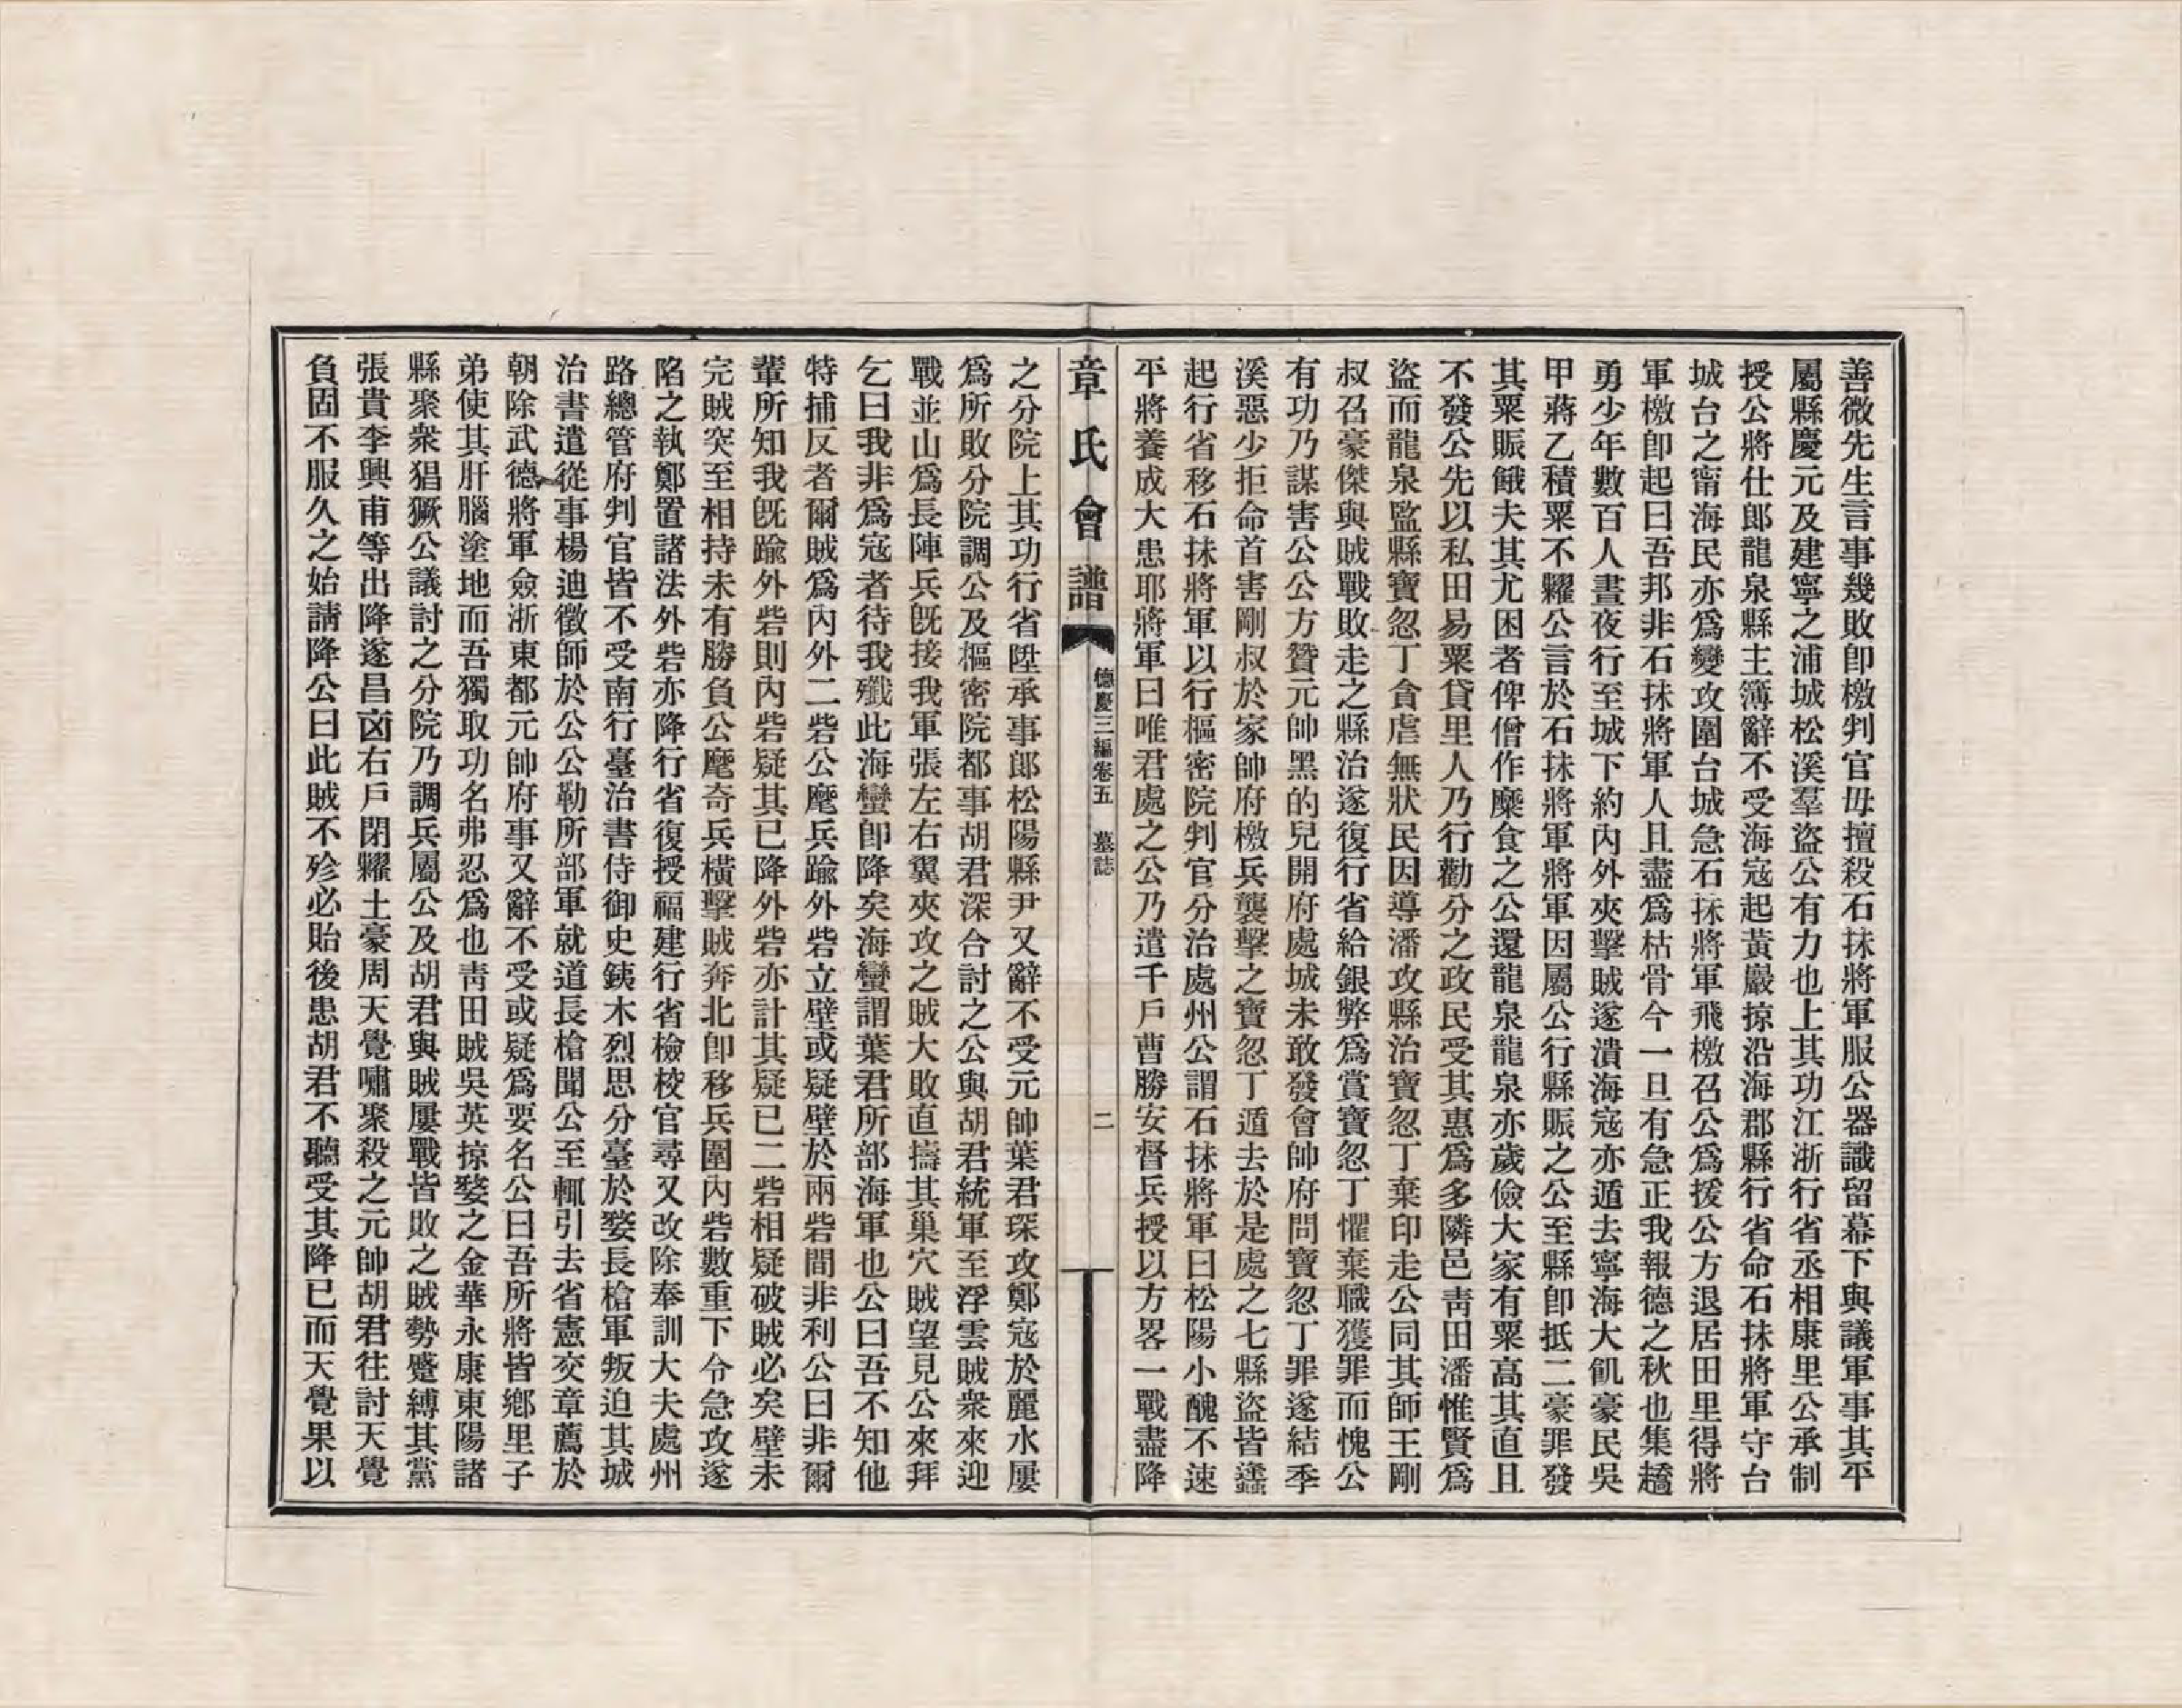 善微先生言事幾敗卽檄判官毋擅殺石抹將軍服公器識留幕下與議軍事其平
屬縣慶元及建寧之浦城松溪羣盜公有力也上其功江浙行省丞相康里公承制
授公將仕郎龍泉縣主簿辭不受海寇起黃巖掠沿海郡縣行省命石抹將軍守台
城台之甯海民亦爲變攻圍台城急石抹將軍飛檄召公爲援公方退居田里得將
軍檄卽起曰吾邦非石抹將軍人且盡爲枯骨今一旦有急正我報德之秋也集趫
勇少年數百人晝夜行至城下約內外夾擊賊遂潰海寇亦遁去寧海大飢豪民吳
甲蔣乙積粟不糶公言於石抹將軍將軍因屬公行縣賑之公至縣卽抵二豪罪發
其粟賑餓夫其尤困者俾僧作糜食之公還龍泉龍泉亦歲儉大家有粟高其直且
不發公先以私田易粟貸里人乃行勸分之政民受其惠爲多隣邑靑田潘惟賢爲
盜而龍泉監縣寶忽丁貪虐無狀民因導潘攻縣治寶忽丁棄印走公同其師王剛
叔召豪傑與賊戰敗走之縣治遂復行省給銀弊爲賞寶忽丁懼棄職獲罪而愧公
有功乃謀害公公方贊元帥黑的兒開府處城未敢發會帥府問寶忽丁罪遂結季
溪惡少拒命首害剛叔於家帥府檄兵襲擊之寶忽丁遁去於是處之七縣盜皆蠭
起行省移石抹將軍以行樞密院判官分治處州公謂石抹將軍曰松陽小醜不速
平將養成大患耶將軍曰唯君處之公乃遣千戶曹勝安督兵授以方畧一戰盡降
章氏會譜 德慶三編卷五 墓誌 二
之分院上其功行省陞承事郎松陽縣尹又辭不受元帥葉君琛攻鄭寇於麗水屢
爲所敗分院調公及樞密院都事胡君深合討之公與胡君統軍至浮雲賊衆來迎
戰並山爲長陣兵旣接我軍張左右翼夾攻之賊大敗直擣其巢穴賊望見公來拜
乞曰我非爲寇者待我殲此海蠻卽降矣海蠻謂葉君所部海軍也公曰吾不知他
特捕反者爾賊爲內外二砦公麾兵踰外砦立壁或疑壁於兩砦間非利公曰非爾
輩所知我旣踰外砦則內砦疑其已降外砦亦計其疑已二砦相疑破賊必矣壁未
完賊突至相持未有勝負公麾奇兵橫擊賊奔北卽移兵圍內砦數重下令急攻遂
陷之執鄭置諸法外砦亦降行省復授福建行省檢校官尋又改除奉訓大夫處州
路總管府判官皆不受南行臺治書侍御史銕木烈思分臺於婺長槍軍叛迫其城
治書遣從事楊迪徵師於公公勒所部軍就道長槍聞公至輒引去省憲交章薦於
朝除武德將軍僉浙東都元帥府事又辭不受或疑爲要名公曰吾所將皆鄕里子
弟使其肝腦塗地而吾獨取功名弗忍爲也靑田賊吳英掠婺之金華永康東陽諸
縣聚衆猖獗公議討之分院乃調兵屬公及胡君與賊屢戰皆敗之賊勢蹙縛其黨
張貴李興甫等出降遂昌囟右戶閉糶土豪周天覺嘯聚殺之元帥胡君往討天覺
負固不服久之始請降公曰此賊不殄必貽後患胡君不聽受其降已而天覺果以